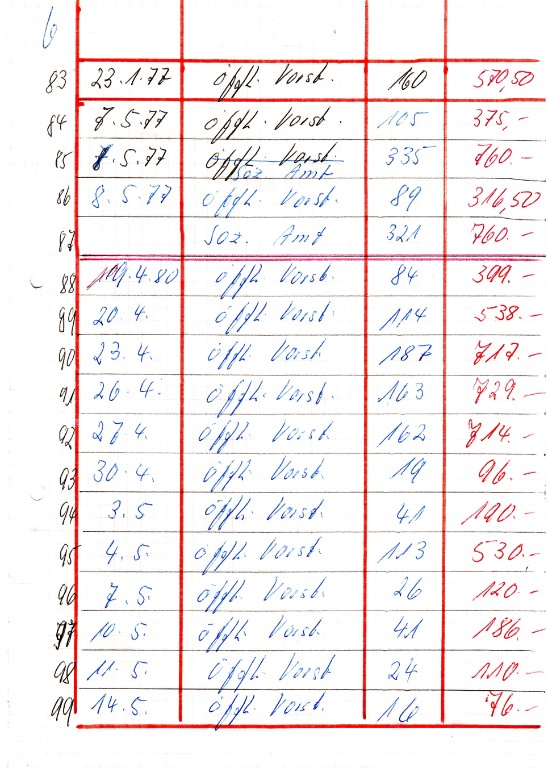 6
83 23.1.77 öfftl. Vorst. 160 570,50
84 7.5.77 öfftl. Vorst. 105 375,-
85 7.5.77 öfftl. Vorst 335 760.-
Soz. Amt
86 8.5.77 öfftl. Vorst. 89 316,50
87 Soz. Amt 321 760.-
88 19.4.80 öfftl. Vorst. 84 399.-
89 20.4. öfftl. Vorst. 114 538.-
90 23.4. öfftl. Vorst 187 717.-
91 26.4. öfftl. Vorst. 163 729.-
92 27.4. öfftl. Vorst. 162 714.-
93 30.4. öfftl. Vorst. 19 96.-
94 3.5 öfftl. Vorst. 41 190.-
95 4.5. öfftl. Vorst. 113 530.-
96 7.5. öfftl. Vorst. 26 120.-
97 10.5. öfftl. Vorst. 41 186.-
98 11.5. öfftl. Vorst. 24 110.-
99 14.5. öfftl. Vorst. 16 76.-